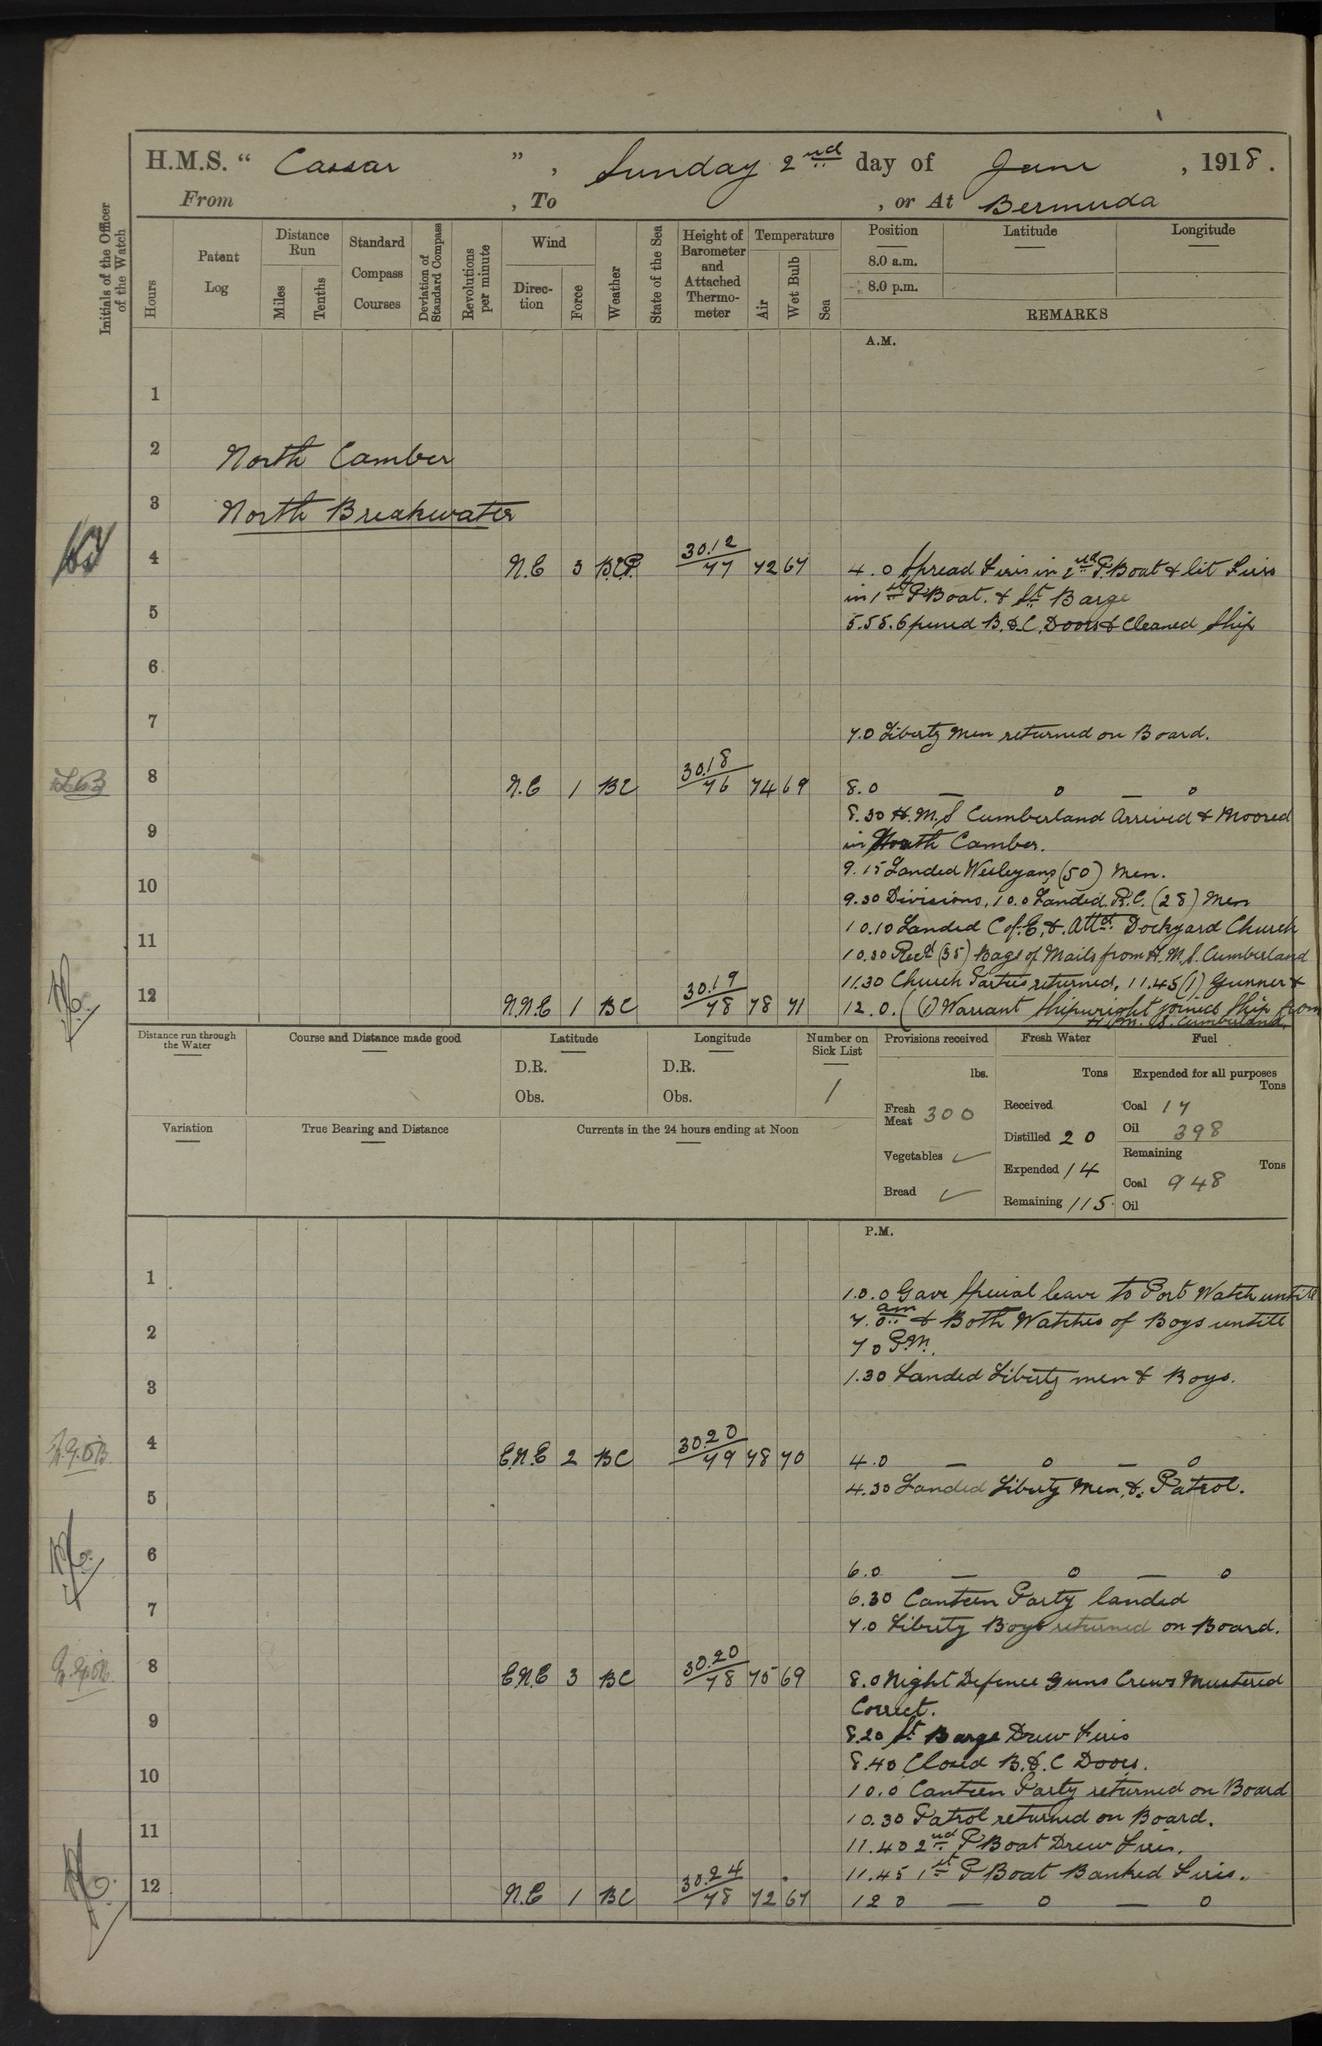 H.M.S. “ Caesar ” , Sunday 2nd day of June , 1918 .
From , To , or At Bermuda
Initials of the Officer of the Watch
Hours
Patent Log
Distance Run
Miles
Tenths
Standard Compass Courses
Deviation of Standard Compass
Revolutions per minute
Wind
Direc- tion
Force
Weather
State of the Sea
Height of Barometer and Attached Thermo- meter
Temperature
Air
Wet Bulb
Sea
Position
Latitude
Longitude
8.0 a.m.
8.0 p.m.
REMARKS
A.M.
1
2 North Camber
3 North Breakwater
4 N.E 3 B.C.P. 30.12/77 72 67 4.0 Spread Fires in 2nd P. Boat & lit Fires
in 1st P Boat. & St. Barge
5 5.55. Opened B.&.C. Doors & Cleaned Ship
6
7 7.0 Liberty Men returned on Board.
8 N.E 1 BC 30.18/76 74 69 8.0 — o — o
8.30 H.M.S Cumberland Arrived & Moored
9 in North Camber.
9.15 Landed Wesleyans (50) Men.
10 9.30 Divisions, 10.0 Landed R.C. (28) Men
10.10 Landed C of. E, &. Attd. Dockyard Church
11 10.30 Recd (35) Bags of Mails from H.M.S. Cumberland
11.30 Church Parties returned, 11.45 (1) Gunner &
12 N.N.E 1 BC 30.19/78 78 71 12.0. (1) Warrant Shipwright joined Ship from
H.M.S. Cumberland.
Distance run through the Water
Course and Distance made good
Latitude
D.R.
Obs.
Longitude
D.R.
Obs.
Number on Sick List
1
Provisions received
lbs.
Fresh Meat 300
Vegetables ✓
Bread ✓
Fresh Water
Tons
Received
Distilled 20
Expended 14
Remaining 115.
Fuel
Expended for all purposes
Tons
Coal 17
Oil 398
Remaining
Tons
Coal 948
Oil
Variation
True Bearing and Distance
Currents in the 24 hours ending at Noon
P.M.
1 1.0.0 Gave Special leave to Port Watch untill
7.0 am & Both Watches of Boys untill
2 7 0 P.M.
3 1.30 Landed Liberty men & Boys.
4 E.N.E 2 BC 30.20/79 78 70 4.0 — o — o
5 4.30 Landed Liberty Men, &. Patrol.
6 6.0 — o — o
6.30 Canteen Party landed
7 7.0 Liberty Boys returned on Board.
8 E.N.E 3 BC 30.20/78 75 69 8.0 Night Defence Guns Crews Mustered
Correct.
9 8.20 St Barge Drew Fires
8.40 Closed B.&.C Doors.
10 10.0 Canteen Party returned on Board
10.30 Patrol returned on Board.
11 11.40 2nd P Boat Drew Fires.
11.45 1st P Boat Banked Fires.
12 N.E 1 BC 30.24/78 72 67 12 0 — o — o